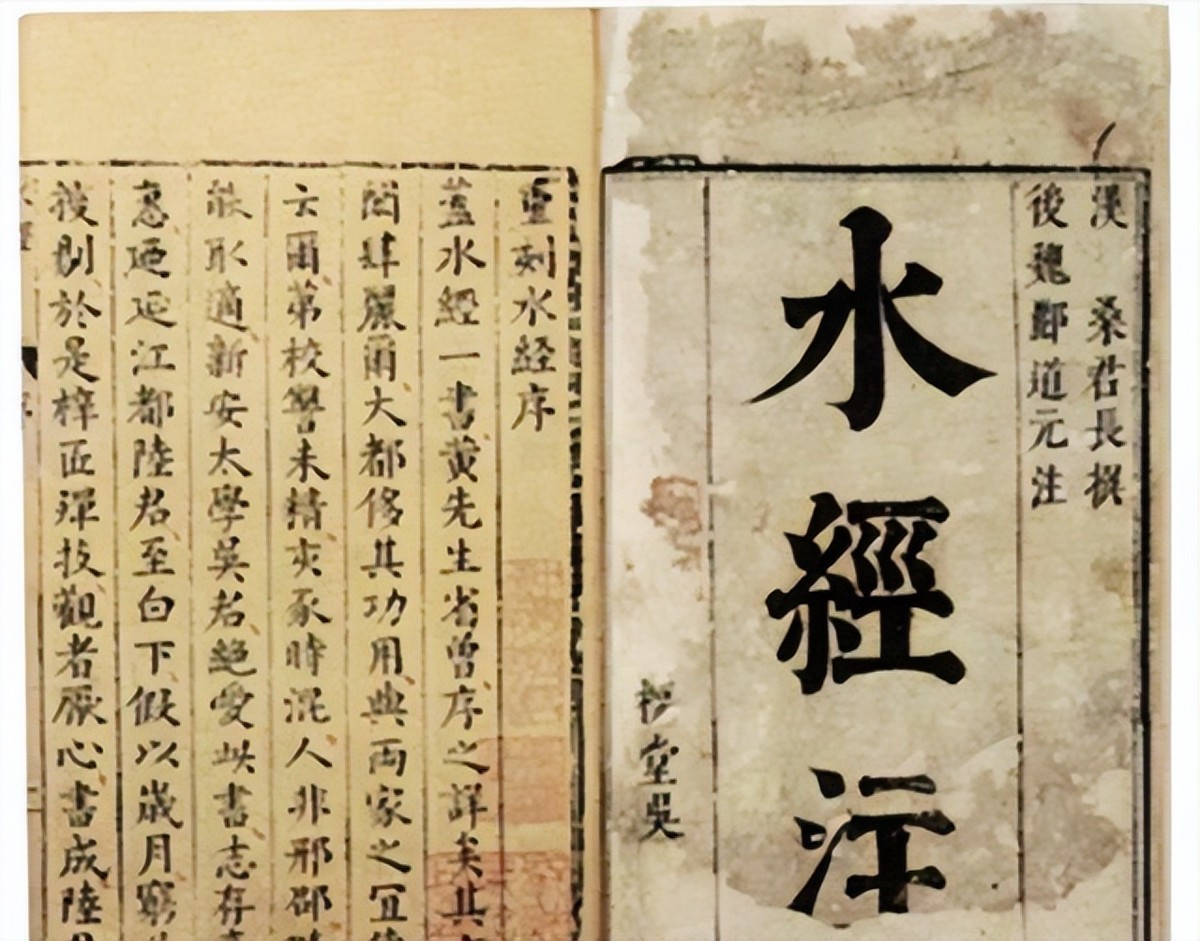 漢 桑君長撰
後魏酈道元注
水經注
堂吳
重刻水經序
蓋水經一書黃先生省曾序之詳矣其
閭肆麗爾大都侈其功用典兩家之
云爾第校讐未精亥豕時混人非邢邵
雠取適新安太學吳君絕愛此書志存
江都陸君至白下假以歲月窮
後剞於是梓匠殫技觀者厭心書成陸